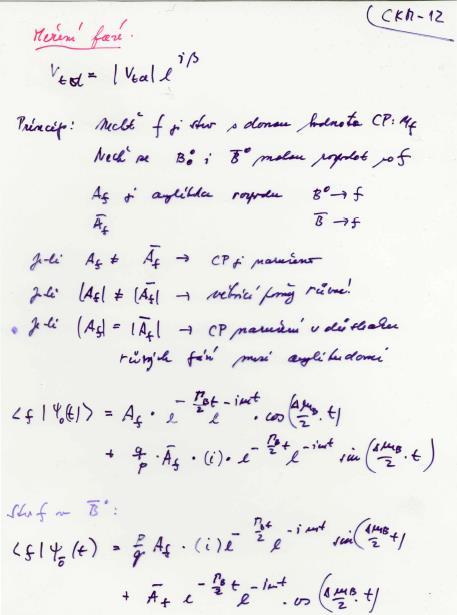 CKM-12
Měření fází.
V_td = |V_td| e^{iβ}
Princip: Nechť f je stav s danou hodnotou CP: η_f
Nechť se B⁰ i B̄⁰ mohou rozpadat do f
A_f je amplituda rozpadu B⁰ → f
Ā_f B̄ → f
Je-li A_f ≠ Ā_f → CP je narušeno
Je-li |A_f| ≠ |Ā_f| → různé!
Je-li |A_f| = |Ā_f| → CP narušení v důsledku
různých fází mezi amplitudami
<f|Ψ₀(t)> = A_f · e^{-Γ_B/2 t} e^{-imt} · cos(Δm_B/2 · t)
+ q/p · Ā_f · (i) · e^{-Γ_B/2 t} e^{-imt} sin(Δm_B/2 · t)
B̄⁰:
<f|Ψ_0̄(t)> = p/q A_f · (i) e^{-Γ_B/2 t} e^{-imt} sin(Δm_B/2 t)
+ Ā_f e^{-Γ_B/2 t} e^{-imt} cos(Δm_B/2 · t)